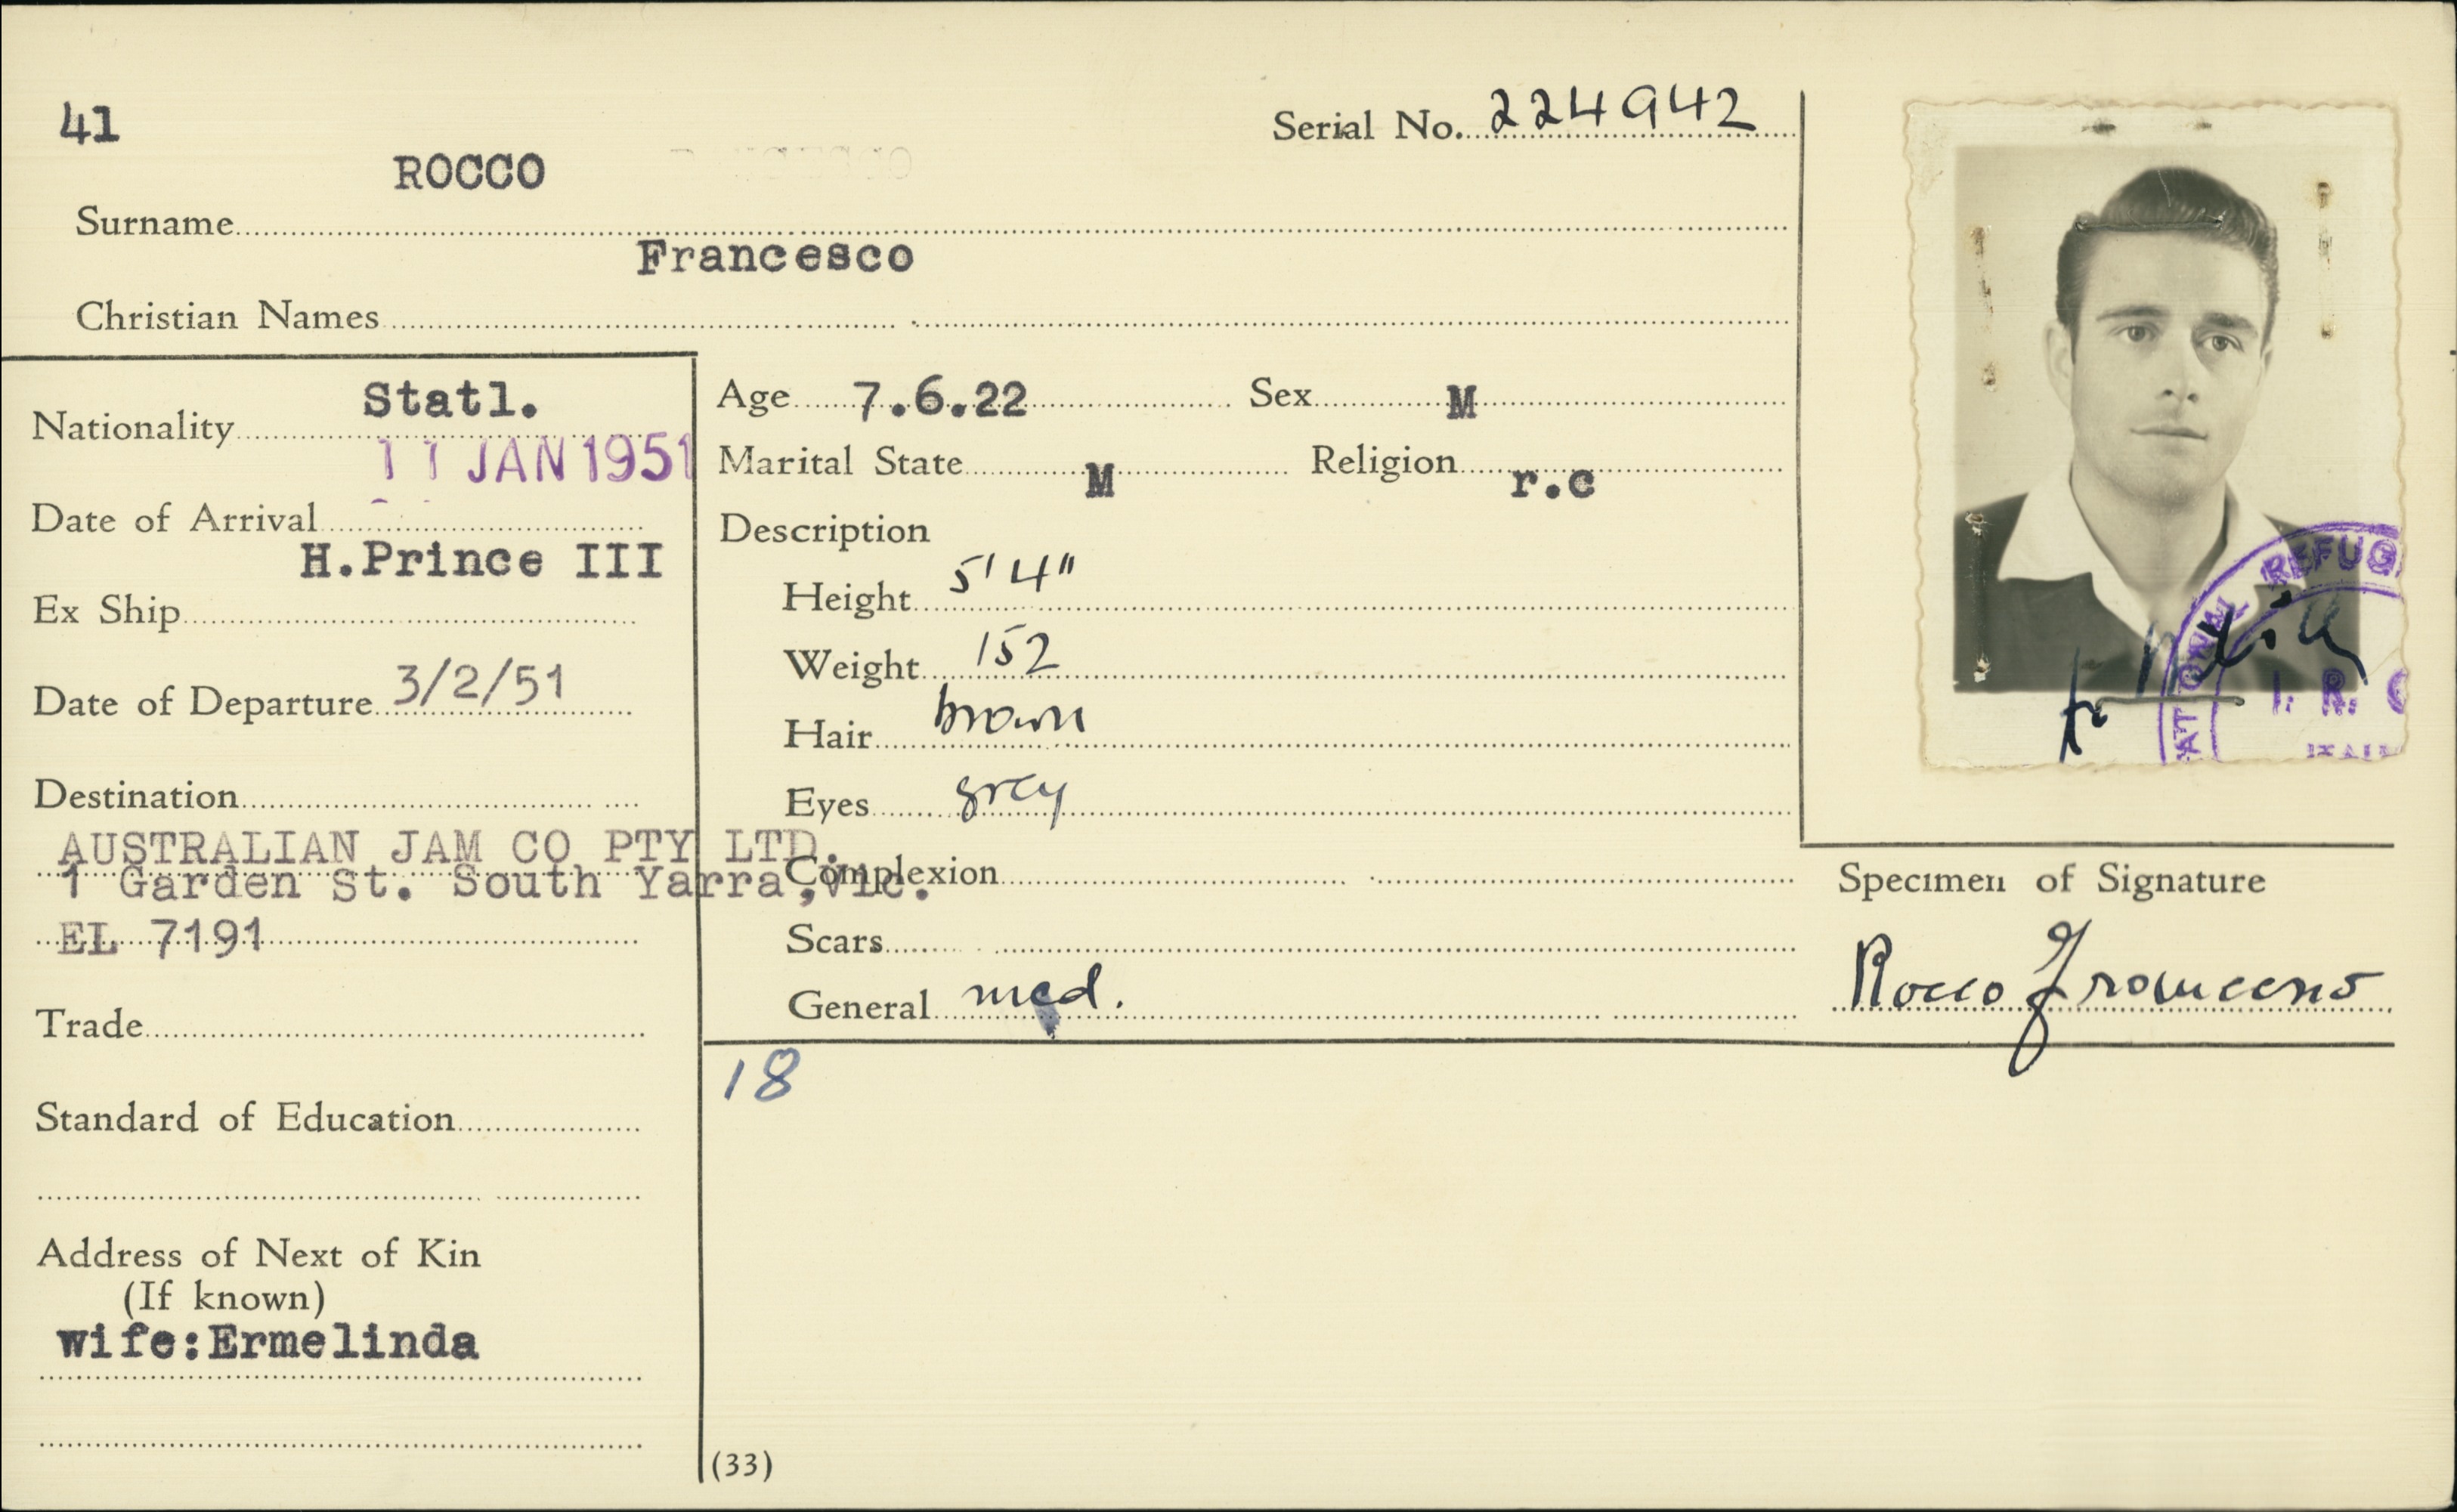 41
Serial No. 224942
ROCCO
Surname
Francesco
Christian Names
Nationality Statl.
11 JAN 1951
Date of Arrival
H.Prince III
Ex Ship
Date of Departure 3/2/51
Destination
AUSTRALIAN JAM CO PTY LTD.
1 Garden St. South Yarra,Vic.
EL 7191
Trade
Standard of Education
Address of Next of Kin
(If known)
wife:Ermelinda
Age 7.6.22 Sex M
Marital State M Religion r.c
Description
Height 5' 4"
Weight 152
Hair brown
Eyes grey
Complexion
Scars
General med.
18
(33)
REFUG
I. R.
Specimen of Signature
Rocco Francesco